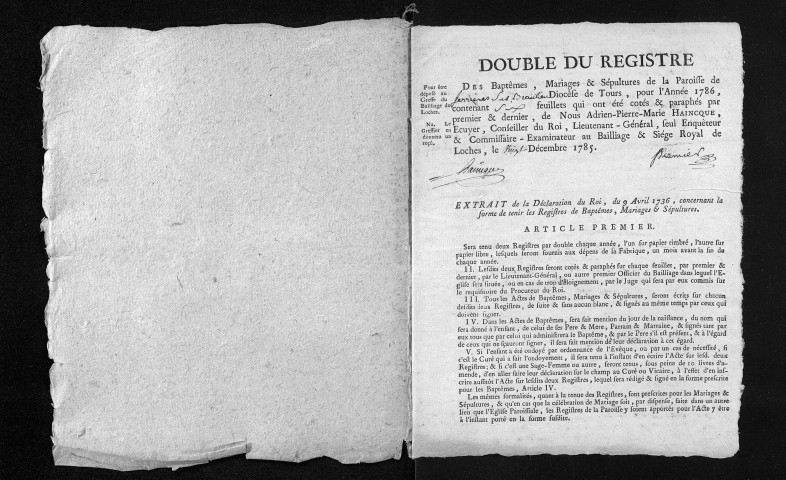 DOUBLE DU REGISTRE
Pour être
déposé au
Greffe du
Bailliage de
Loches.
Na. Le
Greffier en
donnera un
reçu.
DES Baptêmes, Mariages & Sépultures de la Paroisse de
ferrieres Sur Beaulieu Diocèse de Tours, pour l'Année 1786,
contenant Six feuillets qui ont été cotés & paraphés par
premier & dernier, de Nous Adrien-Pierre-Marie HAINCQUE,
Ecuyer, Conseiller du Roi, Lieutenant-Général, seul Enquêteur
& Commissaire-Examinateur au Bailliage & Siége Royal de
Loches, le Décembre 1785.
Haincque
premier
EXTRAIT de la Déclaration du Roi, du 9 Avril 1736, concernant la
forme de tenir les Registres de Baptêmes, Mariages & Sépultures.
ARTICLE PREMIER.
Sera tenu deux Registres par double chaque année, l'un sur papier timbré, l'autre sur
papier libre, lesquels seront fournis aux dépens de la Fabrique, un mois avant la fin de
chaque année.
II. Lesdits deux Registres seront cotés & paraphés sur chaque feuillet, par premier &
dernier, par le Lieutenant-Général, ou autre premier Officier du Bailliage dans lequel l'E-
glise sera située, ou en cas de trop d'éloignement, par le Juge qui sera par eux commis sur
le requisitoire du Procureur du Roi.
III. Tous les Actes de Baptêmes, Mariages & Sépultures, seront écrits sur chacun
desdits deux Registres, de suite & sans aucun blanc, & signés au même temps par ceux qui
doivent signer.
IV. Dans les Actes de Baptêmes, sera fait mention du jour de la naissance, du nom qui
sera donné à l'enfant, de celui de ses Pere & Mere, Parrain & Marraine, & signés tant par
eux tous que par celui qui administrera le Baptême, & par le Pere s'il est présent, & à l'égard
de ceux qui ne sçauront signer, il sera fait mention de leur déclaration à cet égard.
V. Si l'enfant a été ondoyé par ordonnance de l'Evêque, ou par un cas de nécessité, si
c'est le Curé qui a fait l'ondoyement, il sera tenu à l'instant d'en écrire l'Acte sur lesd. deux
Registres: & si c'est une Sage-Femme ou autre, seront tenus, sous peine de 10 livres d'a-
mende, d'en aller faire leur déclaration sur le champ au Curé ou Vicaire, à l'effet d'en ins-
crire aussitôt l'Acte sur lesdits deux Registres, lequel sera rédigé & signé en la forme prescrite
pour les Baptêmes, Article IV.
Les mêmes formalités, quant à la tenue des Registres, sont prescrites pour les Mariages &
Sépultures, & qu'en cas que la célébration de Mariage soit, par dispense, faite dans un autre
lieu que l'Eglise Paroissiale, les Registres de la Paroisse y soient apportés pour l'Acte y être
à l'instant porté en la forme susdite.